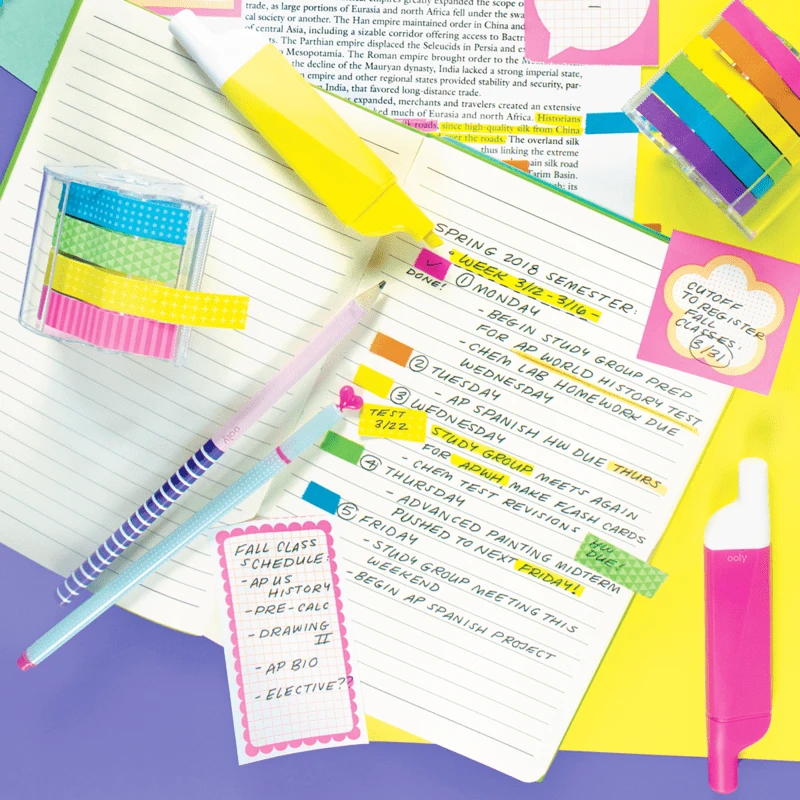 trade, as large portions of Eurasia and north Africa fell under the swa
cal society or another. The Han empire maintained order in China and
of central Asia, including a sizable corridor offering access to Bactr
ts. The Parthian empire displaced the Seleucids in Persia and e
Mesopotamia. The Roman empire brought order to the
the decline of the Mauryan dynasty, India lacked a strong imperial state,
empire and other regional states provided stability and security, par-
India, that favored long-distance trade.
expanded, merchants and travelers created an extensive
ked much of Eurasia and north Africa. Historians
silk roads, since high-quality silk from China
over the roads. The overland silk
thus linking the extreme
ain silk road
Tarim Basin.
its
SPRING 2018 SEMESTER:
WEEK 3/12-3/16-
DONE!
1 MONDAY
- BEGIN STUDY GROUP PREP
FOR AP WORLD HISTORY TEST
- CHEM LAB HOMEWORK DUE
WEDNESDAY
2 TUESDAY
- AP SPANISH HW DUE THURS.
3 WEDNESDAY
STUDY GROUP MEETS AGAIN
FOR APWH, MAKE FLASH CARDS
- CHEM TEST REVISIONS
4 THURSDAY
- ADVANCED PAINTING MIDTERM
PUSHED TO NEXT FRIDAY!
5 FRIDAY
- STUDY GROUP MEETING THIS
WEEKEND
- BEGIN AP SPANISH PROJECT
TEST
3/22
HW
DUE!
CUTOFF
TO REGISTER
FALL
CLASSES:
3/31
FALL CLASS
SCHEDULE:
- AP US
HISTORY
- PRE-CALC
- DRAWING
II
- AP BIO
- ELECTIVE??
ooly
ooly